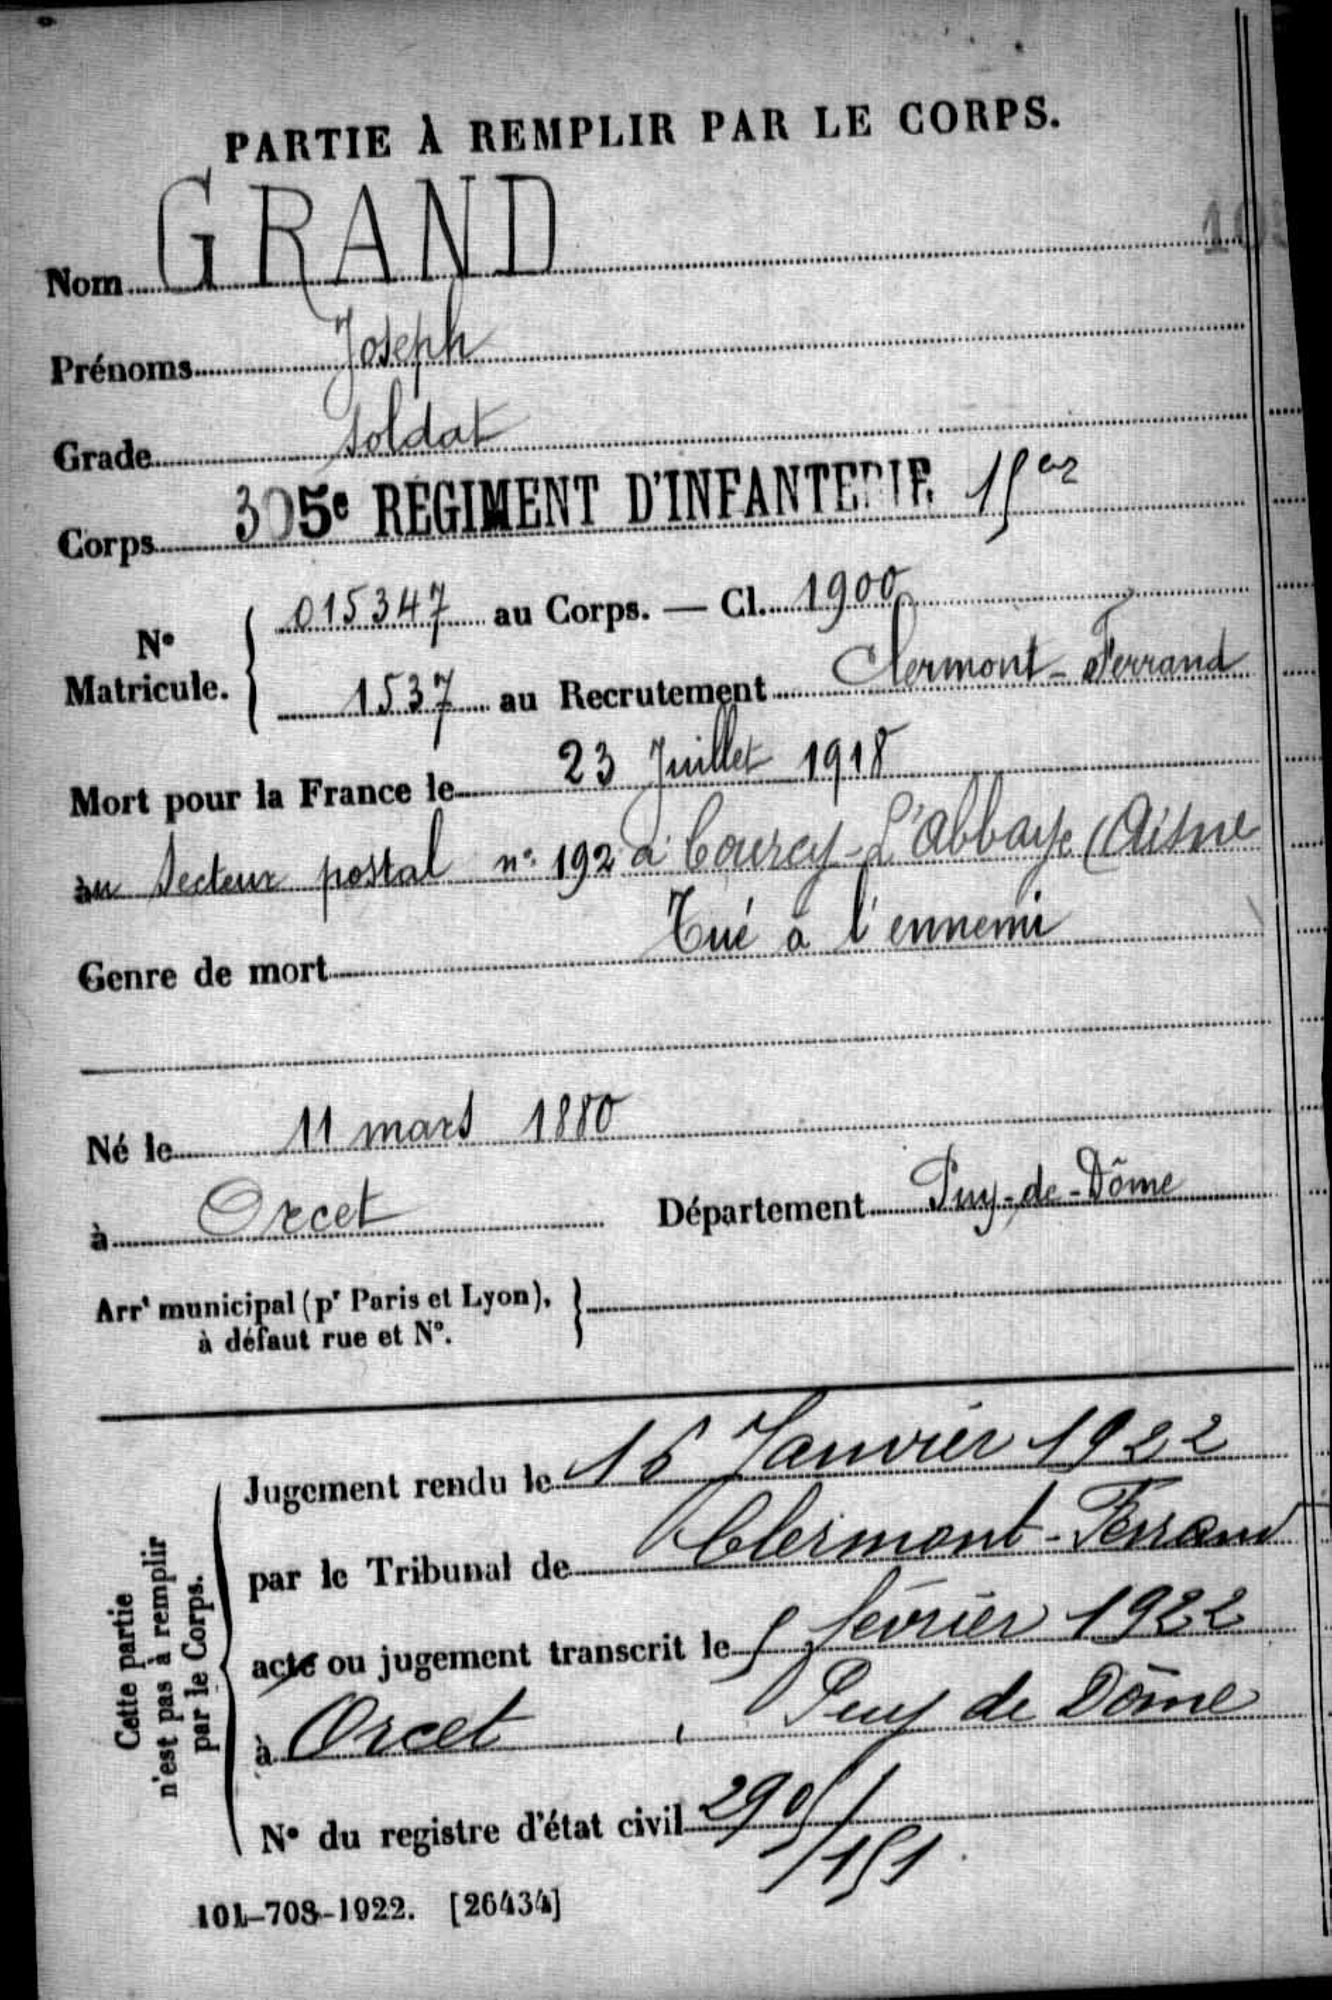 PARTIE À REMPLIR PAR LE CORPS.
Nom GRAND
Prénoms Joseph
Grade soldat
Corps 305e RÉGIMENT D'INFANTERIE
N° Matricule. 015347 au Corps. — Cl. 1900
1537 au Recrutement Clermont-Ferrand
Mort pour la France le 23 Juillet 1918
au Secteur postal n° 192 à Courcy-L'abbaye (Aisne
Genre de mort Tué à l'ennemi
Né le 11 mars 1880
à Orcet Département Puy-de-Dôme
Arrt municipal (pr Paris et Lyon),
à défaut rue et N°.
Cette partie
n'est pas à remplir
par le Corps.
Jugement rendu le 16 Janvier 1922
par le Tribunal de Clermont-Ferrand
acte ou jugement transcrit le 5 février 1922
à Orcet, Puy de Dôme
N° du registre d'état civil
101-708-1922. [26434]